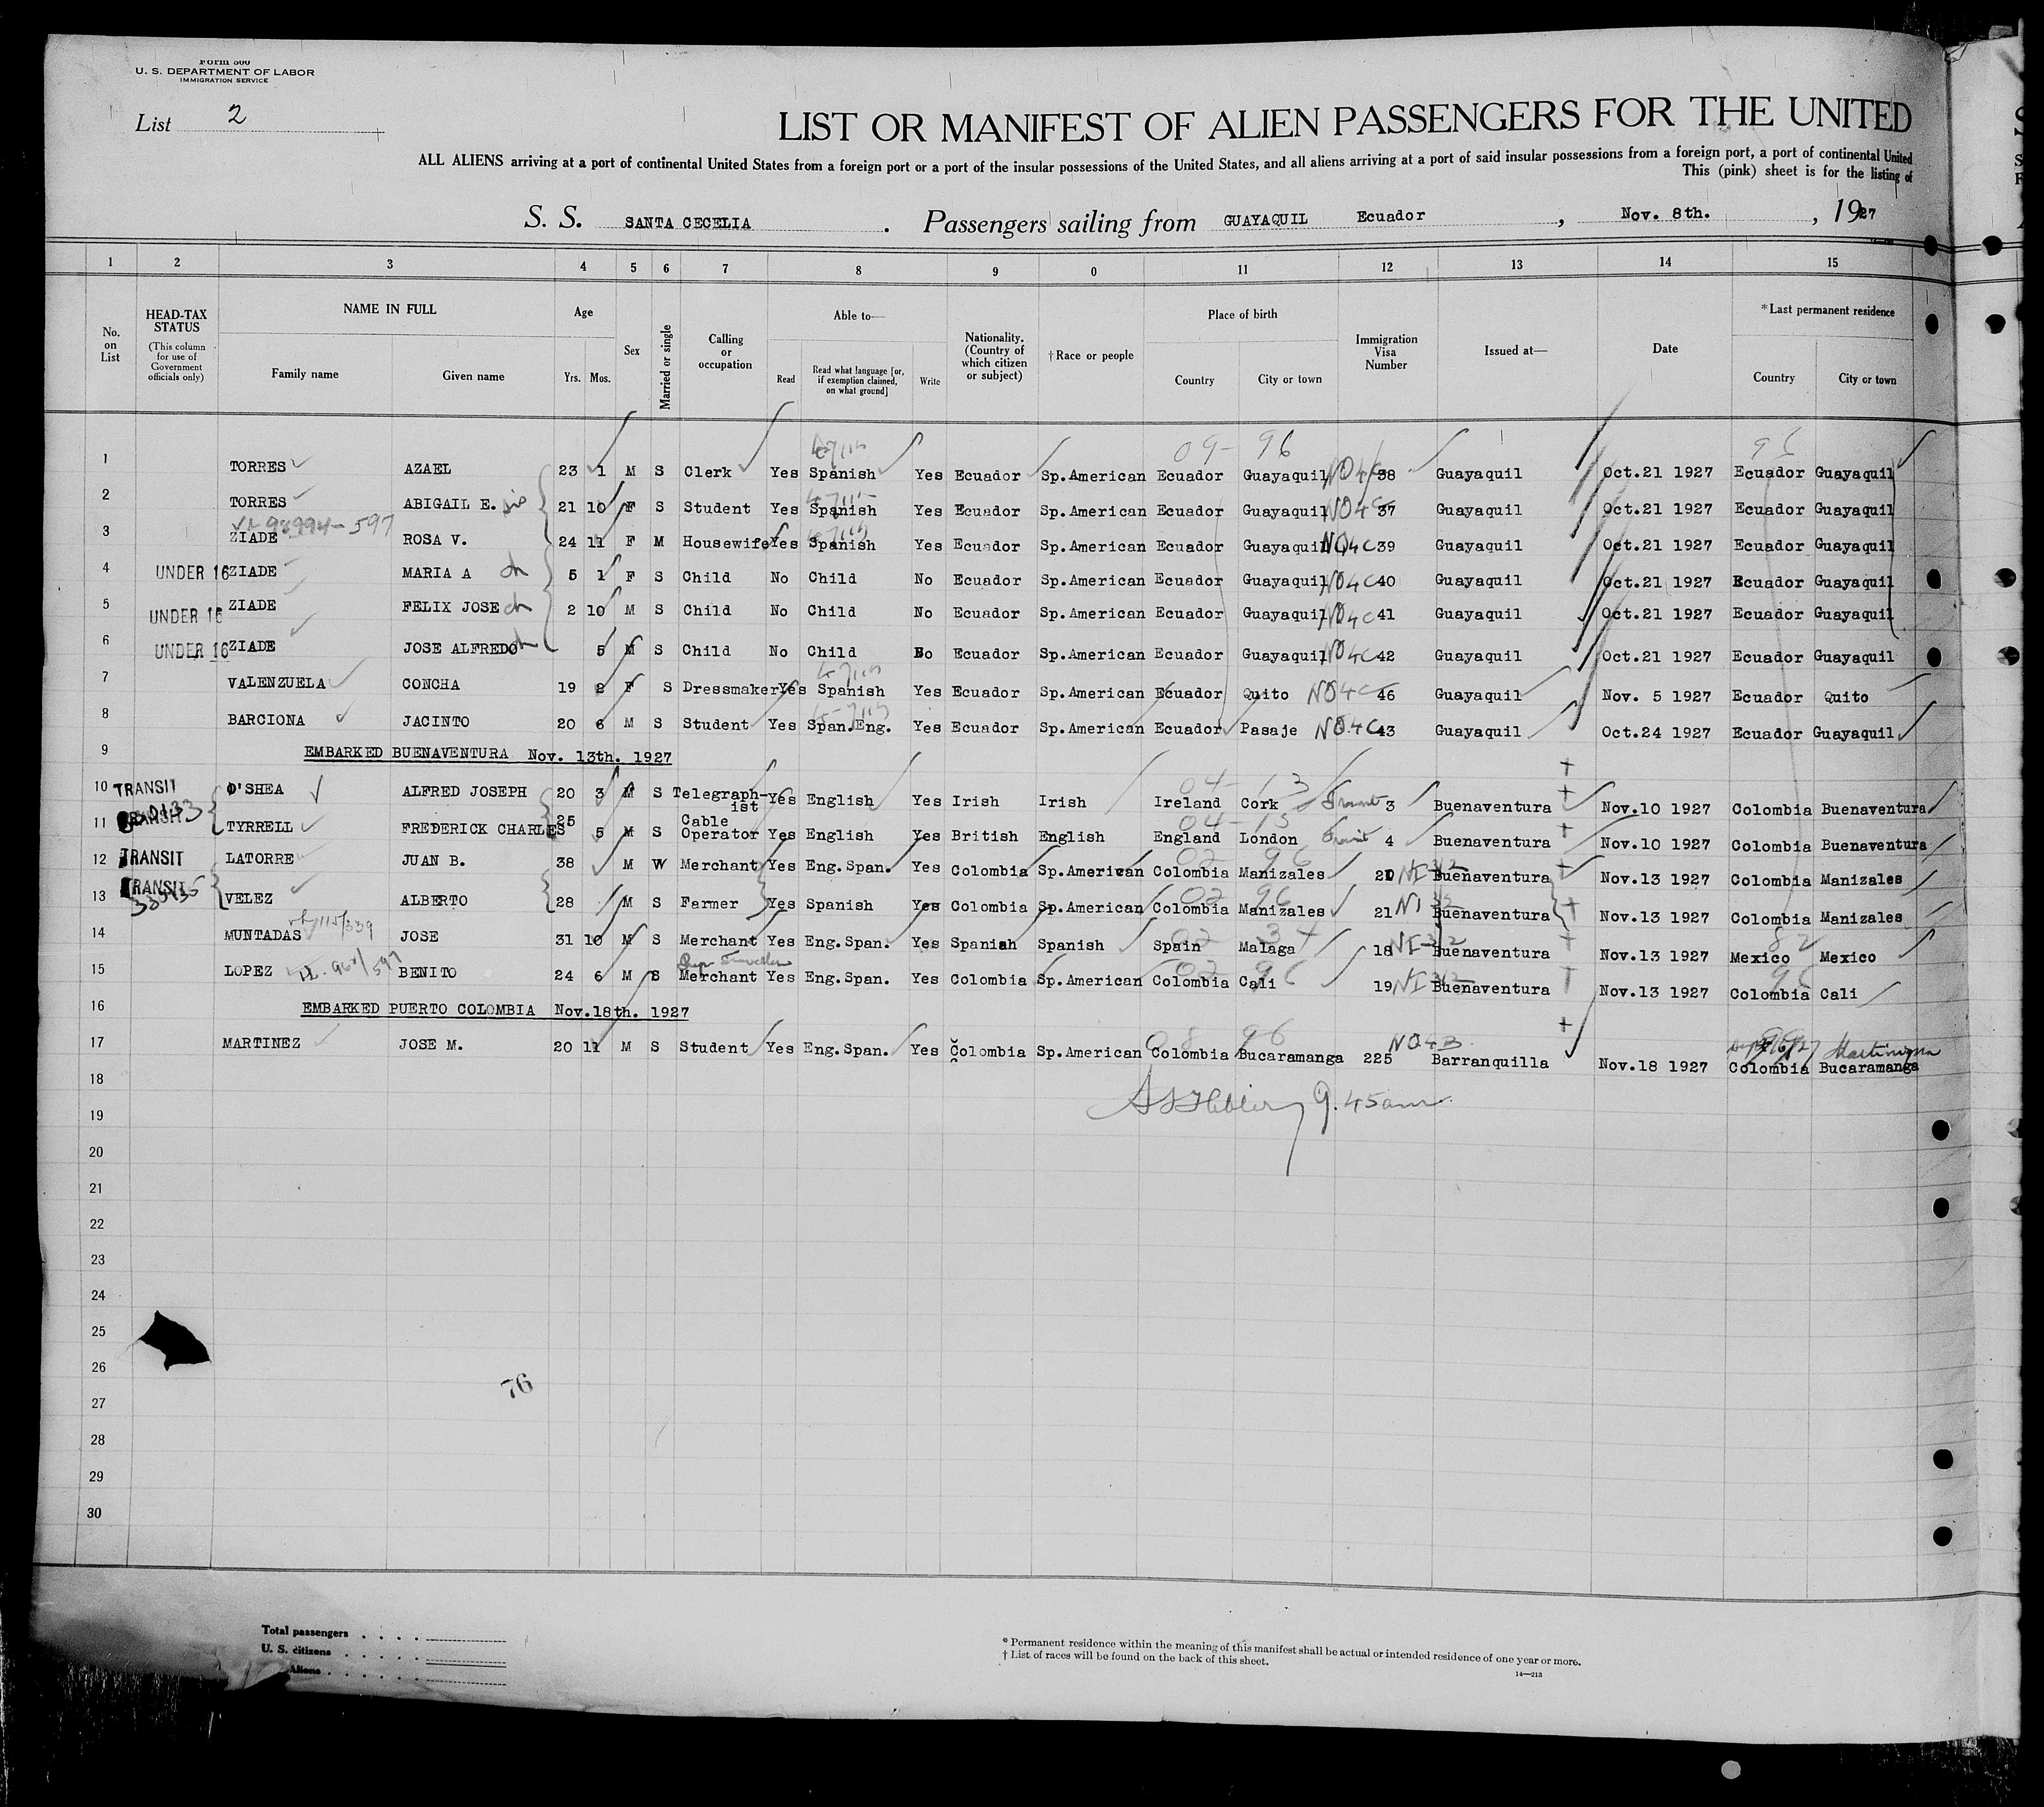 Form 500
U. S. DEPARTMENT OF LABOR
IMMIGRATION SERVICE
List 2
LIST OR MANIFEST OF ALIEN PASSENGERS FOR THE UNITED
ALL ALIENS arriving at a port of continental United States from a foreign port or a port of the insular possessions of the United States, and all aliens arriving at a port of said insular possessions from a foreign port, a port of continental United
This (pink) sheet is for the listing of
S. S. SANTA CECELIA . Passengers sailing from GUAYAQUIL Ecuador , Nov. 8th. , 1927
1 2 3 4 5 6 7 8 9 0 11 12 13 14 15
No. on List
HEAD-TAX STATUS (This column for use of Government officials only)
NAME IN FULL
Family name Given name
Age
Yrs. Mos.
Sex
Married or single
Calling or occupation
Able to—
Read Read what language [or, if exemption claimed, on what ground] Write
Nationality. (Country of which citizen or subject)
†Race or people
Place of birth
Country City or town
Immigration Visa Number
Issued at—
Date
*Last permanent residence
Country City or town
09- 96 96
1 TORRES AZAEL 23 1 M S Clerk Yes Spanish Yes Ecuador Sp.American Ecuador Guayaquil NO4C 38 Guayaquil Oct.21 1927 Ecuador Guayaquil
2 TORRES ABIGAIL E. sis 21 10 F S Student Yes Spanish Yes Ecuador Sp.American Ecuador Guayaquil NO4C 37 Guayaquil Oct.21 1927 Ecuador Guayaquil
3 ZIADE ROSA V. 24 11 F M Housewife Yes Spanish Yes Ecuador Sp.American Ecuador Guayaquil NO4C 39 Guayaquil Oct.21 1927 Ecuador Guayaquil
4 UNDER 16 ZIADE MARIA A ch 5 1 F S Child No Child No Ecuador Sp.American Ecuador Guayaquil NO4C 40 Guayaquil Oct.21 1927 Ecuador Guayaquil
5 UNDER 16 ZIADE FELIX JOSE ch 2 10 M S Child No Child No Ecuador Sp.American Ecuador Guayaquil NO4C 41 Guayaquil Oct.21 1927 Ecuador Guayaquil
6 UNDER 16 ZIADE JOSE ALFREDO ch 5 M S Child No Child No Ecuador Sp.American Ecuador Guayaquil NO4C 42 Guayaquil Oct.21 1927 Ecuador Guayaquil
7 VALENZUELA CONCHA 19 2 F S Dressmaker Yes Spanish Yes Ecuador Sp.American Ecuador Quito NO4C 46 Guayaquil Nov. 5 1927 Ecuador Quito
8 BARCIONA JACINTO 20 6 M S Student Yes Span.Eng. Yes Ecuador Sp.American Ecuador Pasaje NO.4C 43 Guayaquil Oct.24 1927 Ecuador Guayaquil
9 EMBARKED BUENAVENTURA Nov. 13th. 1927
04- 13
10 TRANSIT O'SHEA ALFRED JOSEPH 20 3 M S Telegraph-ist Yes English Yes Irish Irish Ireland Cork Transit 3 Buenaventura Nov.10 1927 Colombia Buenaventura
11 TRANSIT TYRRELL FREDERICK CHARLES 25 5 M S Cable Operator Yes English Yes British English England London Transit 4 Buenaventura Nov.10 1927 Colombia Buenaventura
12 TRANSIT LATORRE JUAN B. 38 M W Merchant Yes Eng.Span. Yes Colombia Sp.American Colombia Manizales 20 Buenaventura Nov.13 1927 Colombia Manizales
13 TRANSIT VELEZ ALBERTO 28 M S Farmer Yes Spanish Yes Colombia Sp.American Colombia Manizales 21 Buenaventura Nov.13 1927 Colombia Manizales
14 MUNTADAS JOSE 31 10 M S Merchant Yes Eng.Span. Yes Spanish Spanish Spain Malaga 18 Buenaventura Nov.13 1927 Mexico Mexico
15 LOPEZ BENITO 24 6 M S Merchant Yes Eng.Span. Yes Colombia Sp.American Colombia Cali 19 Buenaventura Nov.13 1927 Colombia Cali
16 EMBARKED PUERTO COLOMBIA Nov.18th. 1927
17 MARTINEZ JOSE M. 20 11 M S Student Yes Eng.Span. Yes Colombia Sp.American Colombia Bucaramanga 225 NO4B Barranquilla Nov.18 1927 Colombia Bucaramanga
18
9.45am
19
20
21
22
23
24
25
26
76
27
28
29
30
Total passengers
U. S. citizens
Aliens
* Permanent residence within the meaning of this manifest shall be actual or intended residence of one year or more.
† List of races will be found on the back of this sheet.
14—213